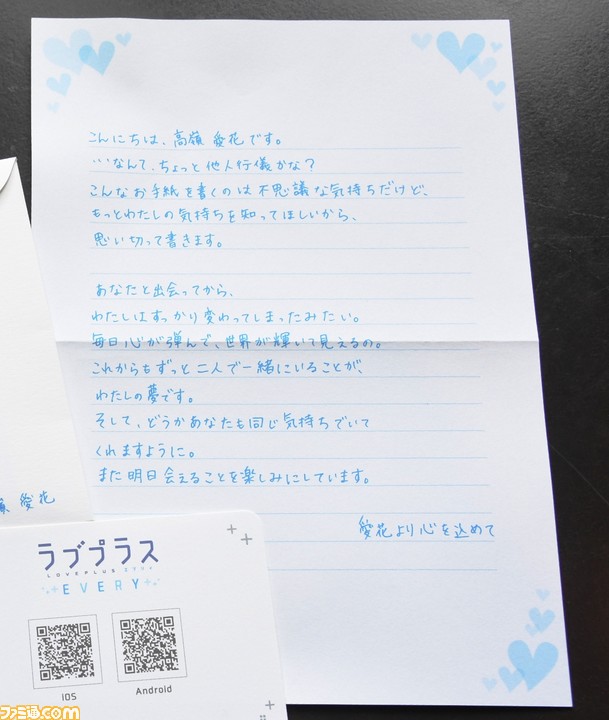 こんにちは、高嶺 愛花です。
…なんて、ちょっと他人行儀かな？
こんなお手紙を書くのは不思議な気持ちだけど、
もっとわたしの気持ちを知ってほしいから、
思い切って書きます。
あなたと出会ってから、
わたしはすっかり変わってしまったみたい。
毎日心が弾んで、世界が輝いて見えるの。
これからもずっと二人で一緒にいることが、
わたしの夢です。
そして、どうかあなたも同じ気持ちでいて
くれますように。
また明日会えることを楽しみにしています。
愛花より心を込めて
嶺 愛花
ラブプラス
LOVEPLUS エブリー
EVERY
iOS
Android
ファミ通.com